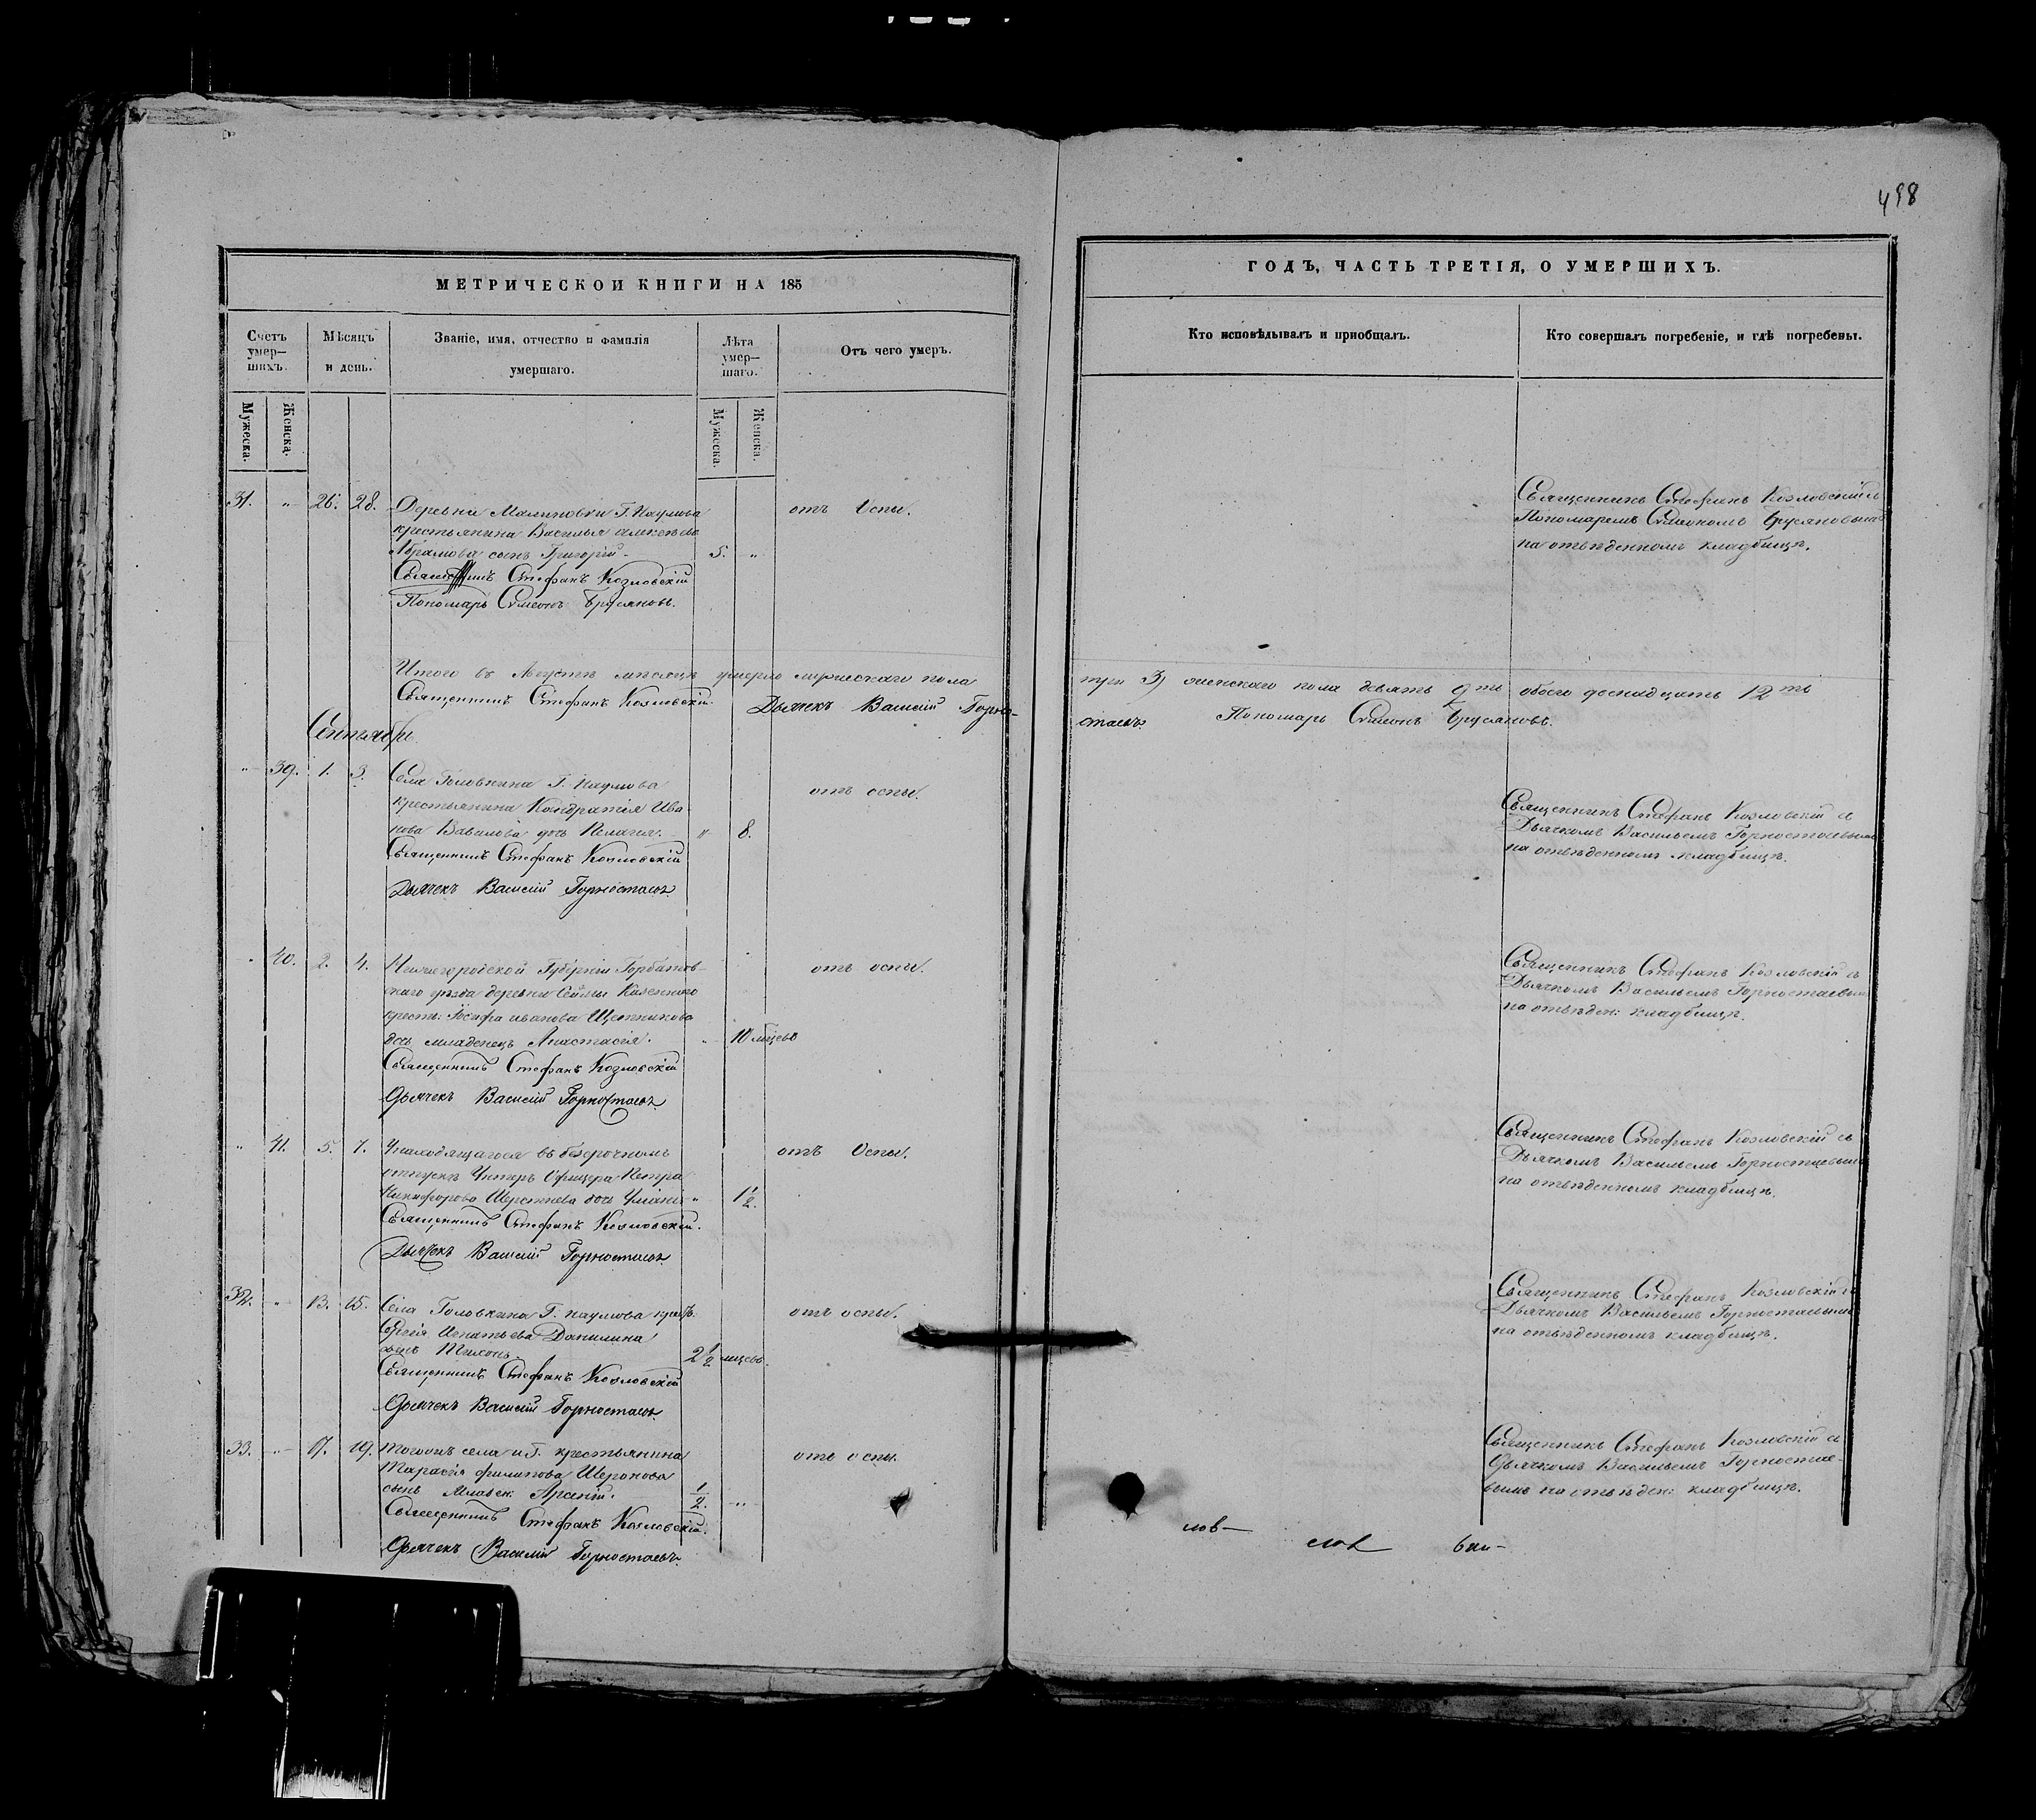 498
МЕТРИЧЕСКОЙ КНИГИ НА 185
ГОДЪ, ЧАСТЬ ТРЕТІЯ, О УМЕРШИХЪ.
Счетъ умер— шихъ.
Мѣсяцъ и день.
Званіе, имя, отчество и фамилія умершаго.
Лѣта умер— шаго.
Отъ чего умеръ.
Кто исповѣдывалъ и пріобщалъ.
Кто совершалъ погребеніе, и гдѣ погребены.
Мужеска.
Женска.
Мужеска.
Женска.
31. „ 26. 28. Деревни Малиновки Г. Наумова
крестьянина Василья Алексѣева
Абрамова сынъ Григорій. 5. „
отъ Оспы.
Священникъ Стефанъ Козловскій
Пономарь Симеонъ Брусяновъ.
Священникъ Стефанъ Козловскій съ
Пономаремъ Симеономъ Брусяновымъ
на отведенномъ кладбищѣ.
Итого въ Августѣ мѣсяцѣ умерло мужескаго пола три 3, женскаго пола девять 9ть обоего двенадцать 12ть
Священникъ Стефанъ Козловскій. Дьячекъ Василій Горно-
стаевъ. Пономарь Симеонъ Брусяновъ.
Сентябрь
„ 39. 1. 3. Села Головкина Г. Наумова
крестьянина Кондратія Ива
нова Вавилова дочь Пелагія. „ 8.
отъ оспы.
Священникъ Стефанъ Козловскій
Дьячекъ Василій Горностаевъ
Священникъ Стефанъ Козловскій съ
Дьячкомъ Васильемъ Горностаевымъ
на отведенномъ кладбищѣ.
„ 40. 2. 4. Нижегородской Губерніи Горбатов-
скаго уѣзда деревни Сеймы Казеннаго
крест: Іосифа Иванова Щетникова
дочь младенецъ Анастасія. „ 10 мѣсецовъ
отъ оспы.
Священникъ Стефанъ Козловскій
Дьячекъ Василій Горностаевъ
Священникъ Стефанъ Козловскій съ
Дьячкомъ Васильемъ Горностаевымъ
на отведен: кладбищѣ.
„ 41. 5. 7. Находящагося въ безсрочномъ
отпуску Унтеръ Офицера Петра
Никифорова Шерстнева дочь „ 1 1/2.
отъ Оспы.
Священникъ Стефанъ Козловскій.
Дьячекъ Василій Горностаевъ
Священникъ Стефанъ Козловскій съ
Дьячкомъ Васильемъ Горностаевымъ
на отведенномъ кладбищѣ.
32. „ 13. 15. Села Головкина Г. Наумова крест.
Сергія Игнатьева Данилина
сынъ Тихонъ. 2 1/2 мѣсецов.
отъ оспы.
Священникъ Стефанъ Козловскій
Дьячекъ Василій Горностаевъ
Священникъ Стефанъ Козловскій съ
Дьячкомъ Васильемъ Горностаевымъ
на отведенномъ кладбищѣ.
33. „ 17. 19. Тогожъ села и Г. крестьянина
Тарасія Филипова Шеронова
сынъ Младен: Арсеній. 1/2. „
отъ оспы.
Священникъ Стефанъ Козловскій.
Дьячекъ Василій Горностаевъ.
Священникъ Стефанъ Козловскій съ
Дьячкомъ Васильемъ Горностае-
вымъ на отведен: кладбищѣ.